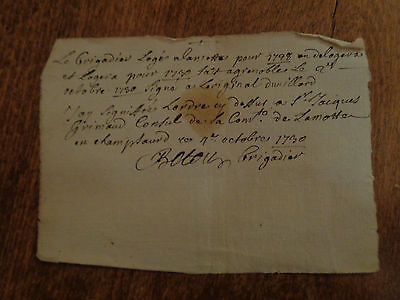 Le Brigadier Logé alamotte pour 1748 en delogera
et Logera pour 1730 fait agrenoble Le 9e
octobre 1730 signé a Loriginal duvillard
Jay signiffié Lordre cy dessus a Sr Jacques
Grimaud Consul de la Comté de Lamotte
en champsaur ce 9e octobre 1730
Brigadier